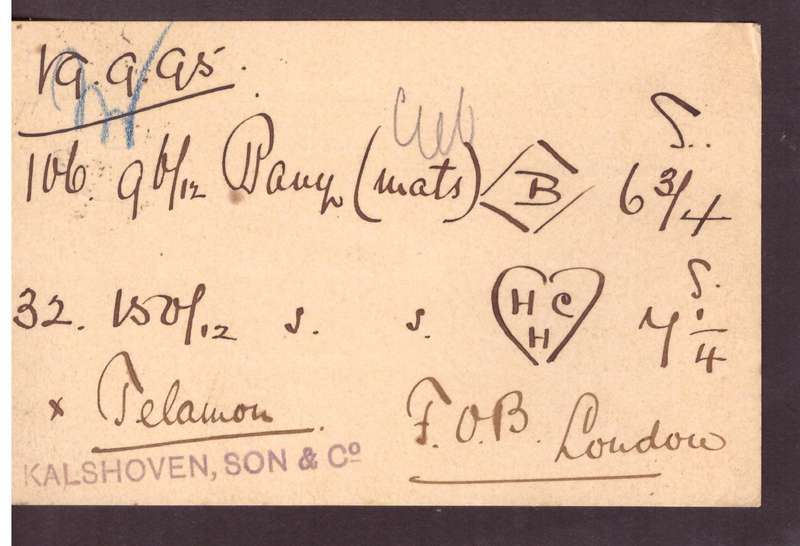 19.9.95.
106. 96/12 Bany (mats) B 6 3/4 S.
32. 150/12 s. s. H C H 7 1/4 S.
x Telamon. F.O.B. London
KALSHOVEN, SON & Co